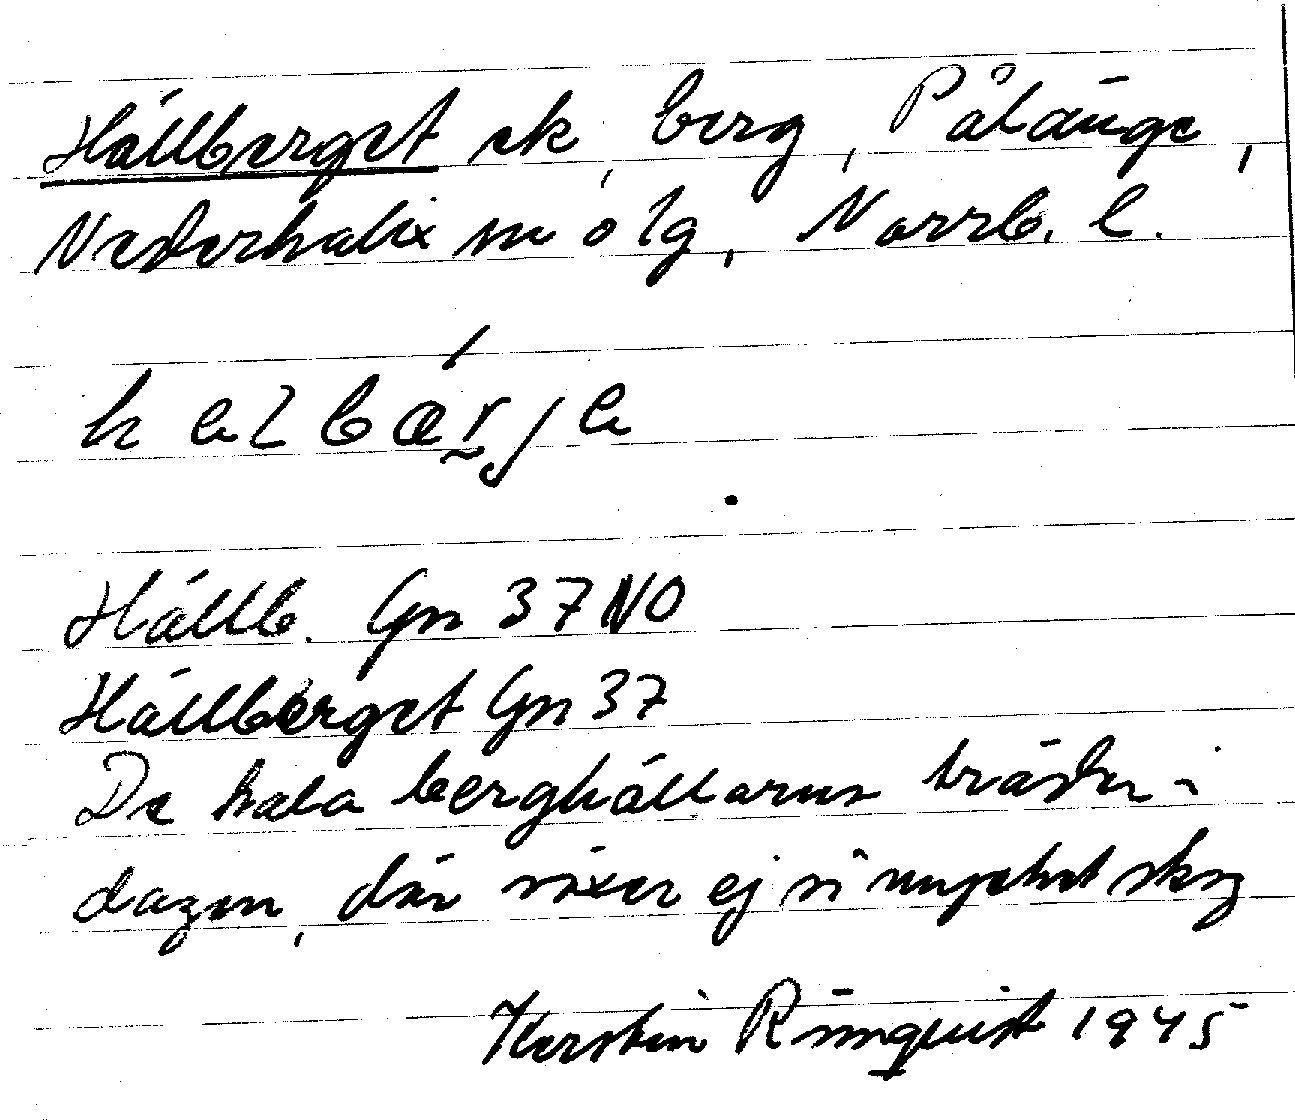 Hällberget ek, berg, Pålänge,
Nederkalix sn o lg, Norrb. l.
Hällb. Gn 37 NO
Hällberget Gn 37
De kala berghällarna träder i
dagen, där växer ej så mycket skog
Kerstin Rönnquist 1945